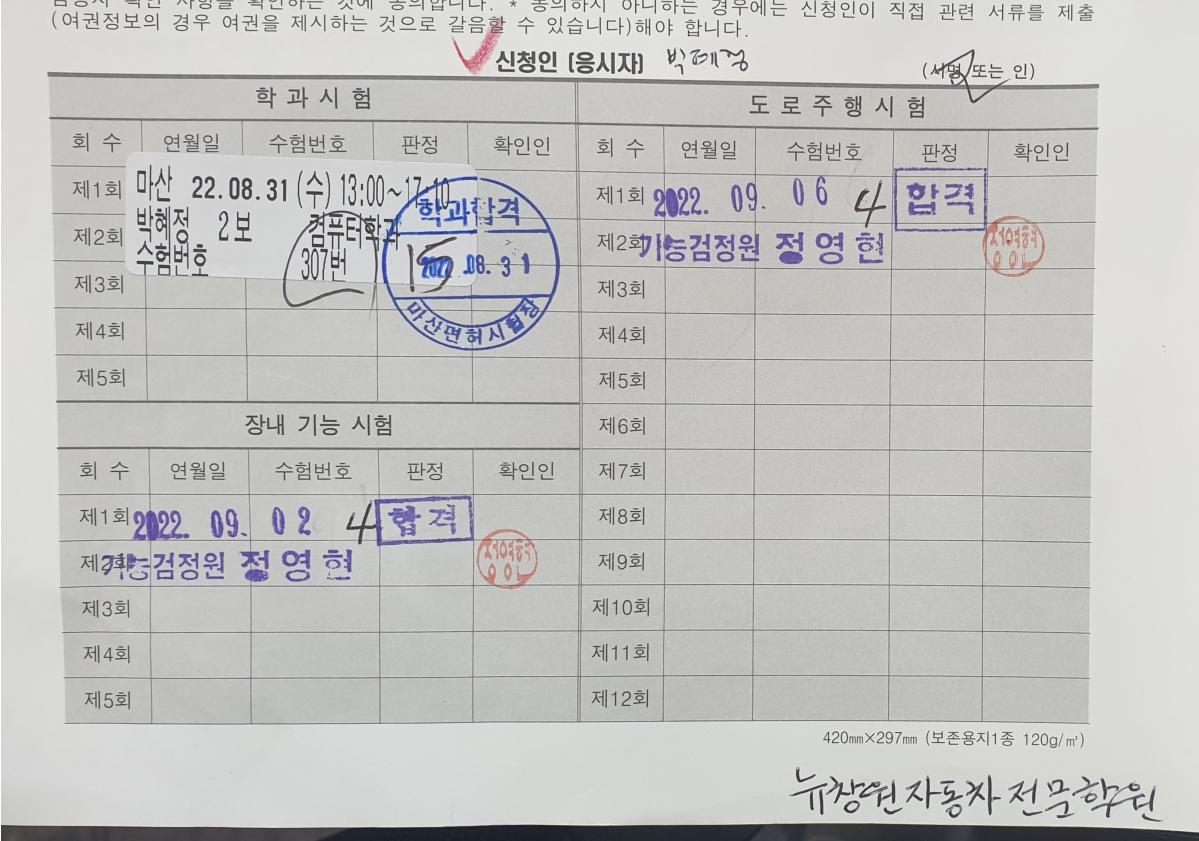 (여권정보의 경우 여권을 제시하는 것으로 갈음할 수 있습니다)해야 합니다.
동의하지 아니하는 경우에는 신청인이 직접 관련 서류를 제출
신청인 (응시자) 박혜정 (서명 또는 인)
학과시험
회 수 연월일 수험번호 판정 확인인
제1회 마산 22.08.31 (수) 13:00~17:10
제2회 박혜정 2보 컴퓨터학과
수험번호 307번
제3회
제4회
제5회
학과합격
15
2022.08.31
마산면허시험장
장내 기능 시험
회 수 연월일 수험번호 판정 확인인
제1회 2022. 09. 02 4 합격
제2회 기능검정원 정영현
제3회
제4회
제5회
도로주행시험
회 수 연월일 수험번호 판정 확인인
제1회 2022. 09. 06 4 합격
제2회 기능검정원 정영현
제3회
제4회
제5회
제6회
제7회
제8회
제9회
제10회
제11회
제12회
420㎜×297㎜ (보존용지1종 120g/㎡)
뉴창원자동차전문학원